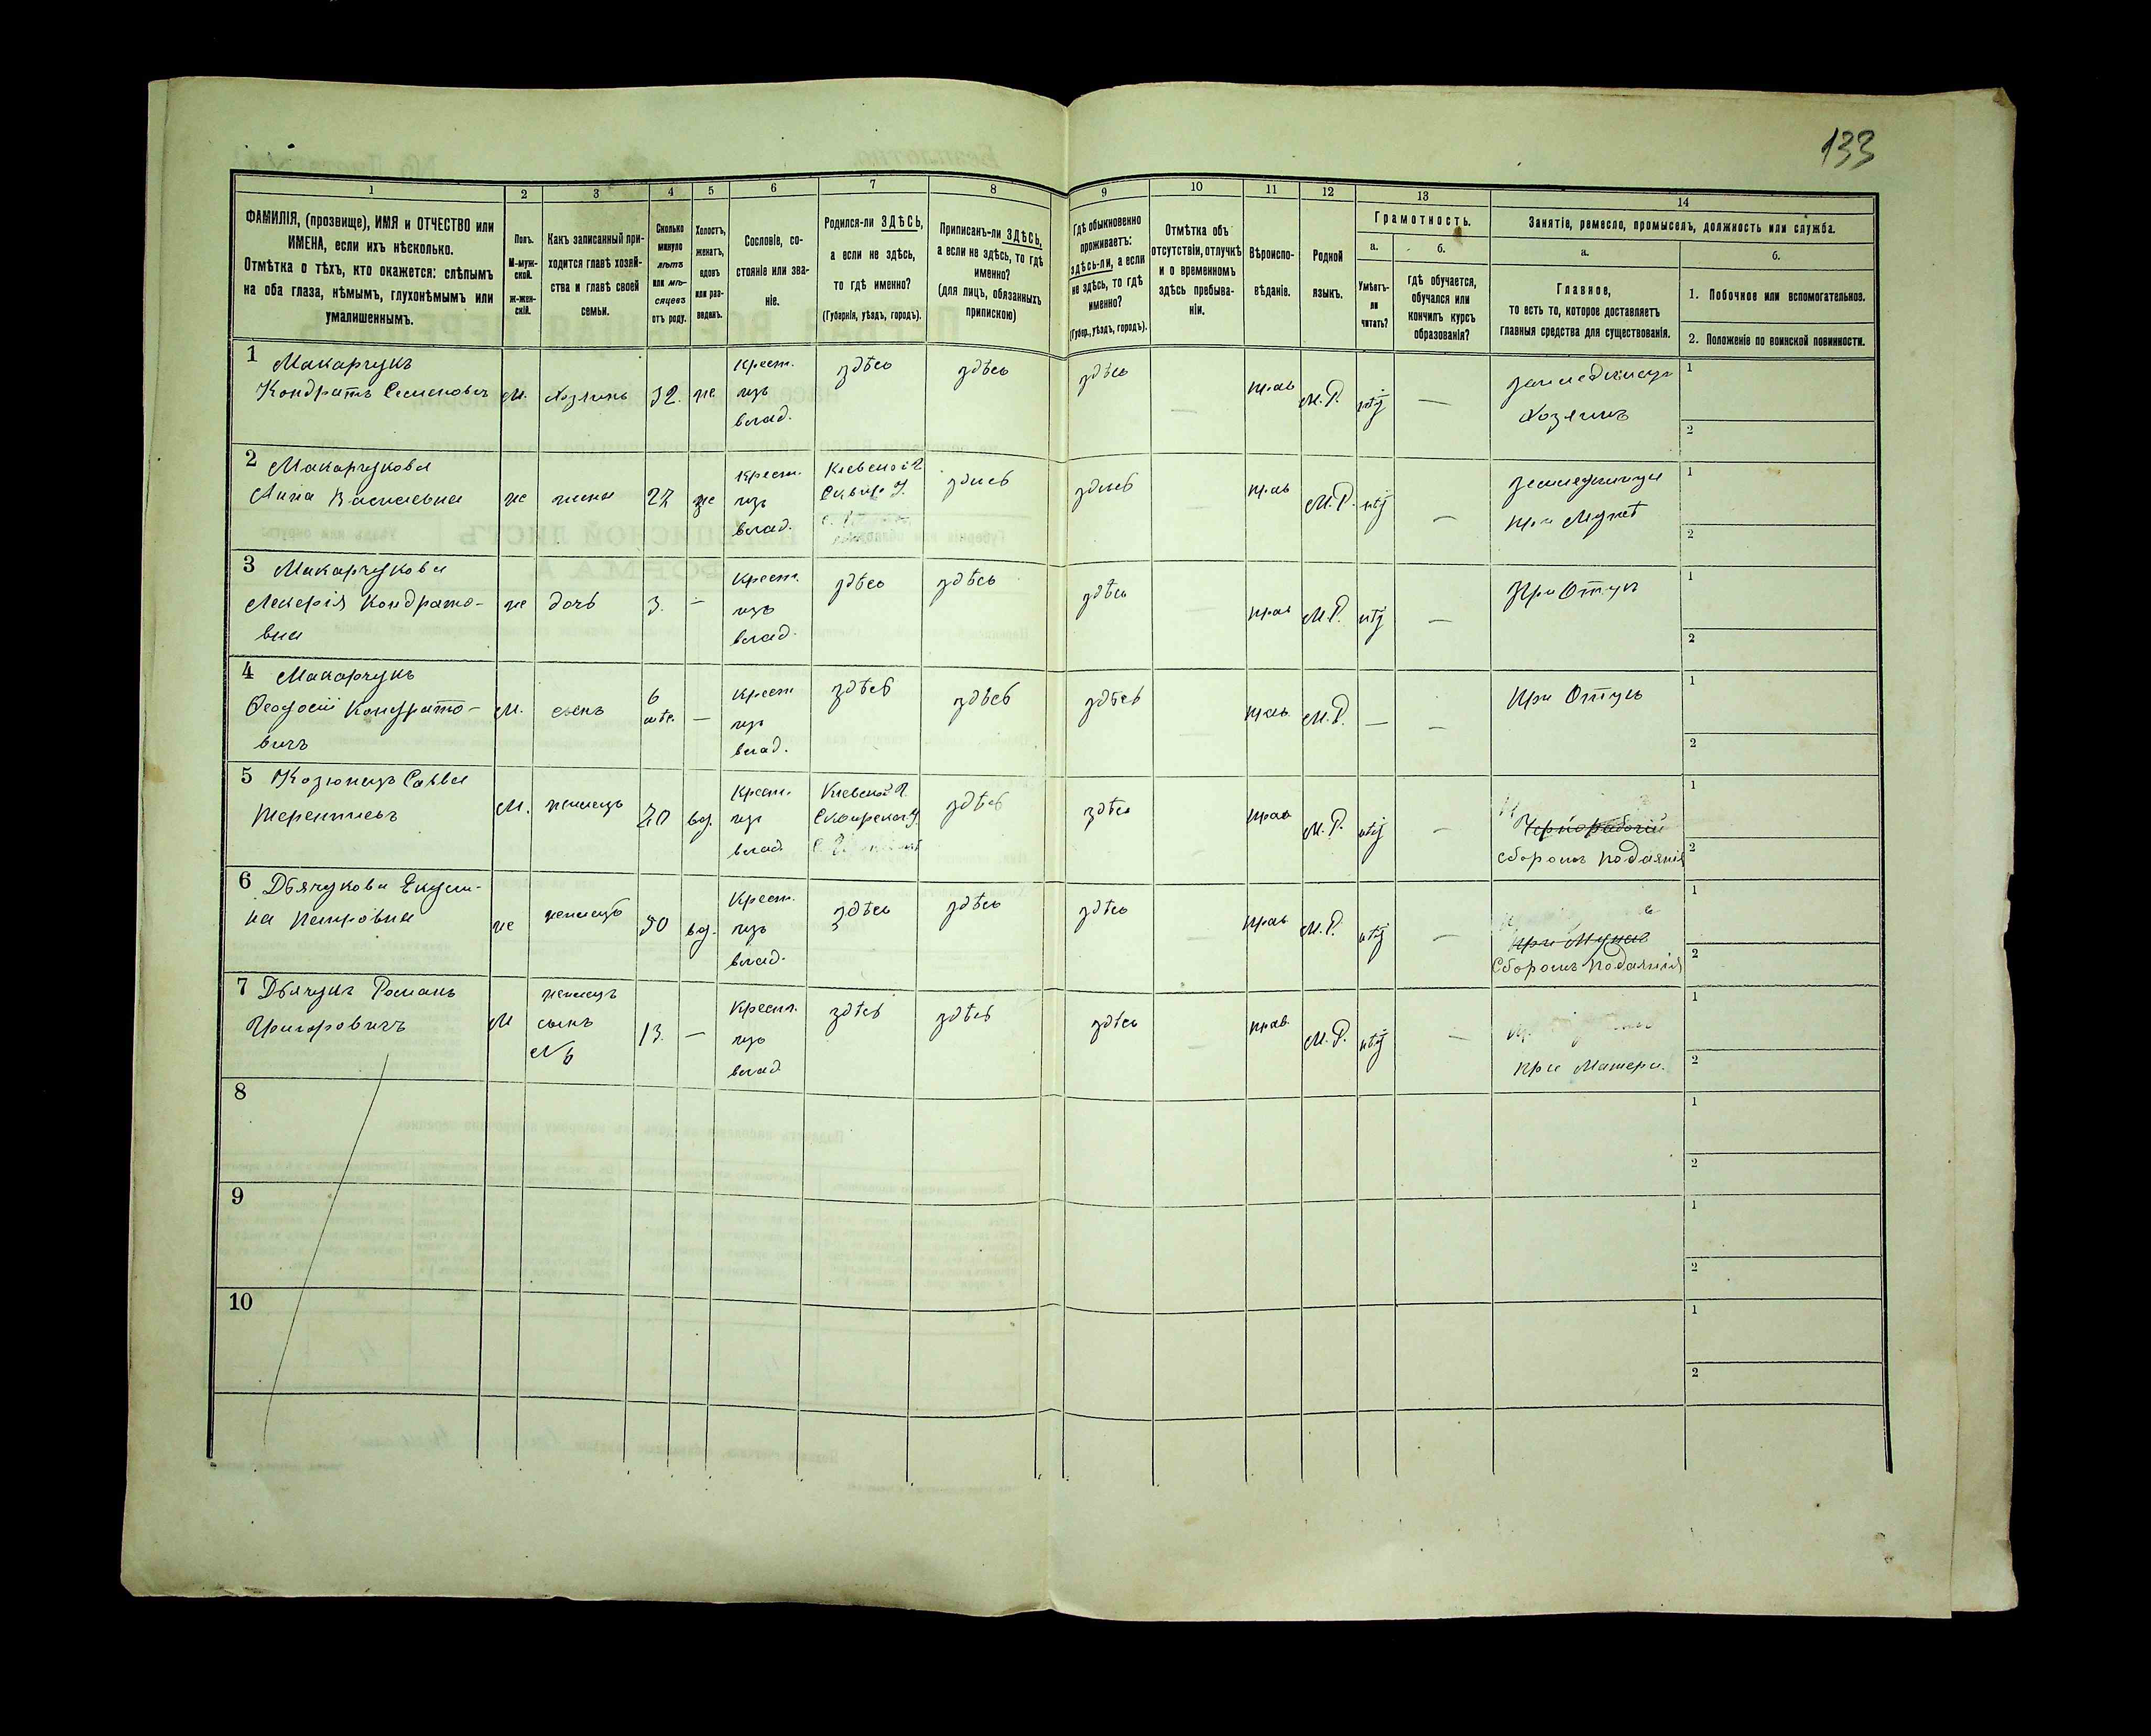 133
1 2 3 4 5 6 7 8 9 10 11 12 13 14
ФАМИЛІЯ, (прозвище), ИМЯ и ОТЧЕСТВО или
ИМЕНА, если ихъ нѣсколько.
Отмѣтка о тѣхъ, кто окажется: слѣпымъ
на оба глаза, нѣмымъ, глухонѣмымъ или
умалишеннымъ.
Полъ.
М-муж-
ской.
ж-жен-
скій.
Какъ записанный при-
ходится главѣ хозяй-
ства и главѣ своей
семьи.
Сколько
минуло
лѣтъ
или мѣ-
сяцевъ
отъ роду.
Холостъ,
женатъ,
вдовъ
или раз-
веденъ.
Сословіе, со-
стояніе или зва-
ніе.
Родился-ли ЗДѢСЬ,
а если не здѣсь,
то гдѣ именно?
(Губернія, уѣздъ, городъ).
Приписанъ-ли ЗДѢСЬ,
а если не здѣсь, то гдѣ
именно?
(для лицъ, обязанныхъ
припискою)
Гдѣ обыкновенно
проживаетъ:
здѣсь-ли, а если
не здѣсь, то гдѣ
именно?
(Губер., уѣздъ, городъ).
Отмѣтка объ
отсутствіи, отлучкѣ
и о временномъ
здѣсь пребыва-
ніи.
Вѣроиспо-
вѣданіе.
Родной
языкъ.
Грамотность.
а.
Умѣетъ-
ли
читать?
б.
Гдѣ обучается,
обучался или
кончилъ курсъ
образованія?
Занятіе, ремесло, промыселъ, должность или служба.
а.
Главное,
то есть то, которое доставляетъ
главныя средства для существованія.
б.
1. Побочное или вспомогательное.
2. Положеніе по воинской повинности.
1 Макарчукъ
Кондратъ Семеновичъ
М. Хозяинъ 32. же
Крест.
изъ
влад.
здѣсь здѣсь здѣсь — прав М.Р. нѣт —
Хозяинъ
1
2
2 Макарчукова
Анна Васильевна
же жена 27 же
Крест.
изъ
влад.
Кіевской Г.
Сквир. У.
здѣсь здѣсь — прав М.Р. нѣт —
при Мужѣ
1
2
3 Макарчукова
Лекерія Кондрато-
вна
же дочь 3. —
Крест.
изъ
влад.
здѣсь здѣсь здѣсь — прав М.Р. нѣт —
При Отцѣ
1
2
4 Макарчукъ
Феодосій Кондрато-
вичъ
М. сынъ
6
мѣс. —
Крест
изъ
влад.
здѣсь здѣсь здѣсь — прав М.Р. — —
При Отцѣ
1
2
5 Савва
Терентіевъ
М. жилецъ 70 вд.
Крест.
изъ
влад.
Кіевской Г.
Сквирской У.
здѣсь здѣсь прав М.Р. нѣт —
Чернорабочій
сборомъ подаянія
1
2
6 Дьячукова Екули-
на Петровна
же жилецъ 50 вд.
Крест.
изъ
влад.
здѣсь здѣсь здѣсь — прав М.Р. нѣт —
Сборомъ подаянія
1
2
7 Дьячукъ Романъ
Григоровичъ
М
жилецъ
сынъ
№ 6
13. —
Крест.
изъ
влад
здѣсь здѣсь здѣсь — прав М.Р. нѣт —
при Матери.
1
2
8
1
2
9
1
2
10
1
2